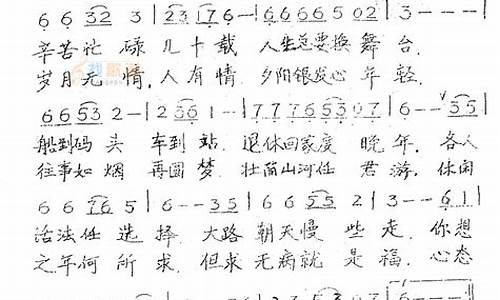 6 6 32 3 | 23 17 6 - | 6 6 6 6 5 02 | 3 - - - |
辛苦忙 碌 几十载 人生总要换 舞 台.
岁月无 情, 人有情 夕阳银发心 年 轻.
6 6 53 2 - | 2 36 1 - | 7 7 7 6 5 3 07 | 6 - - 35 |
船到码 头 车到 站. 退休回家度 晚 年. 各人
往事如 烟 再圆 梦. 壮丽山河任 君 游. 休闲
6 6 16 5 | 6 - - 35 | 6 6 6 5 2 | 3 - - 61 |
活法任 选 择. 大路 朝天慢 些 走. 你想
之年何 所 求. 但求 无病就 是 福. 心态